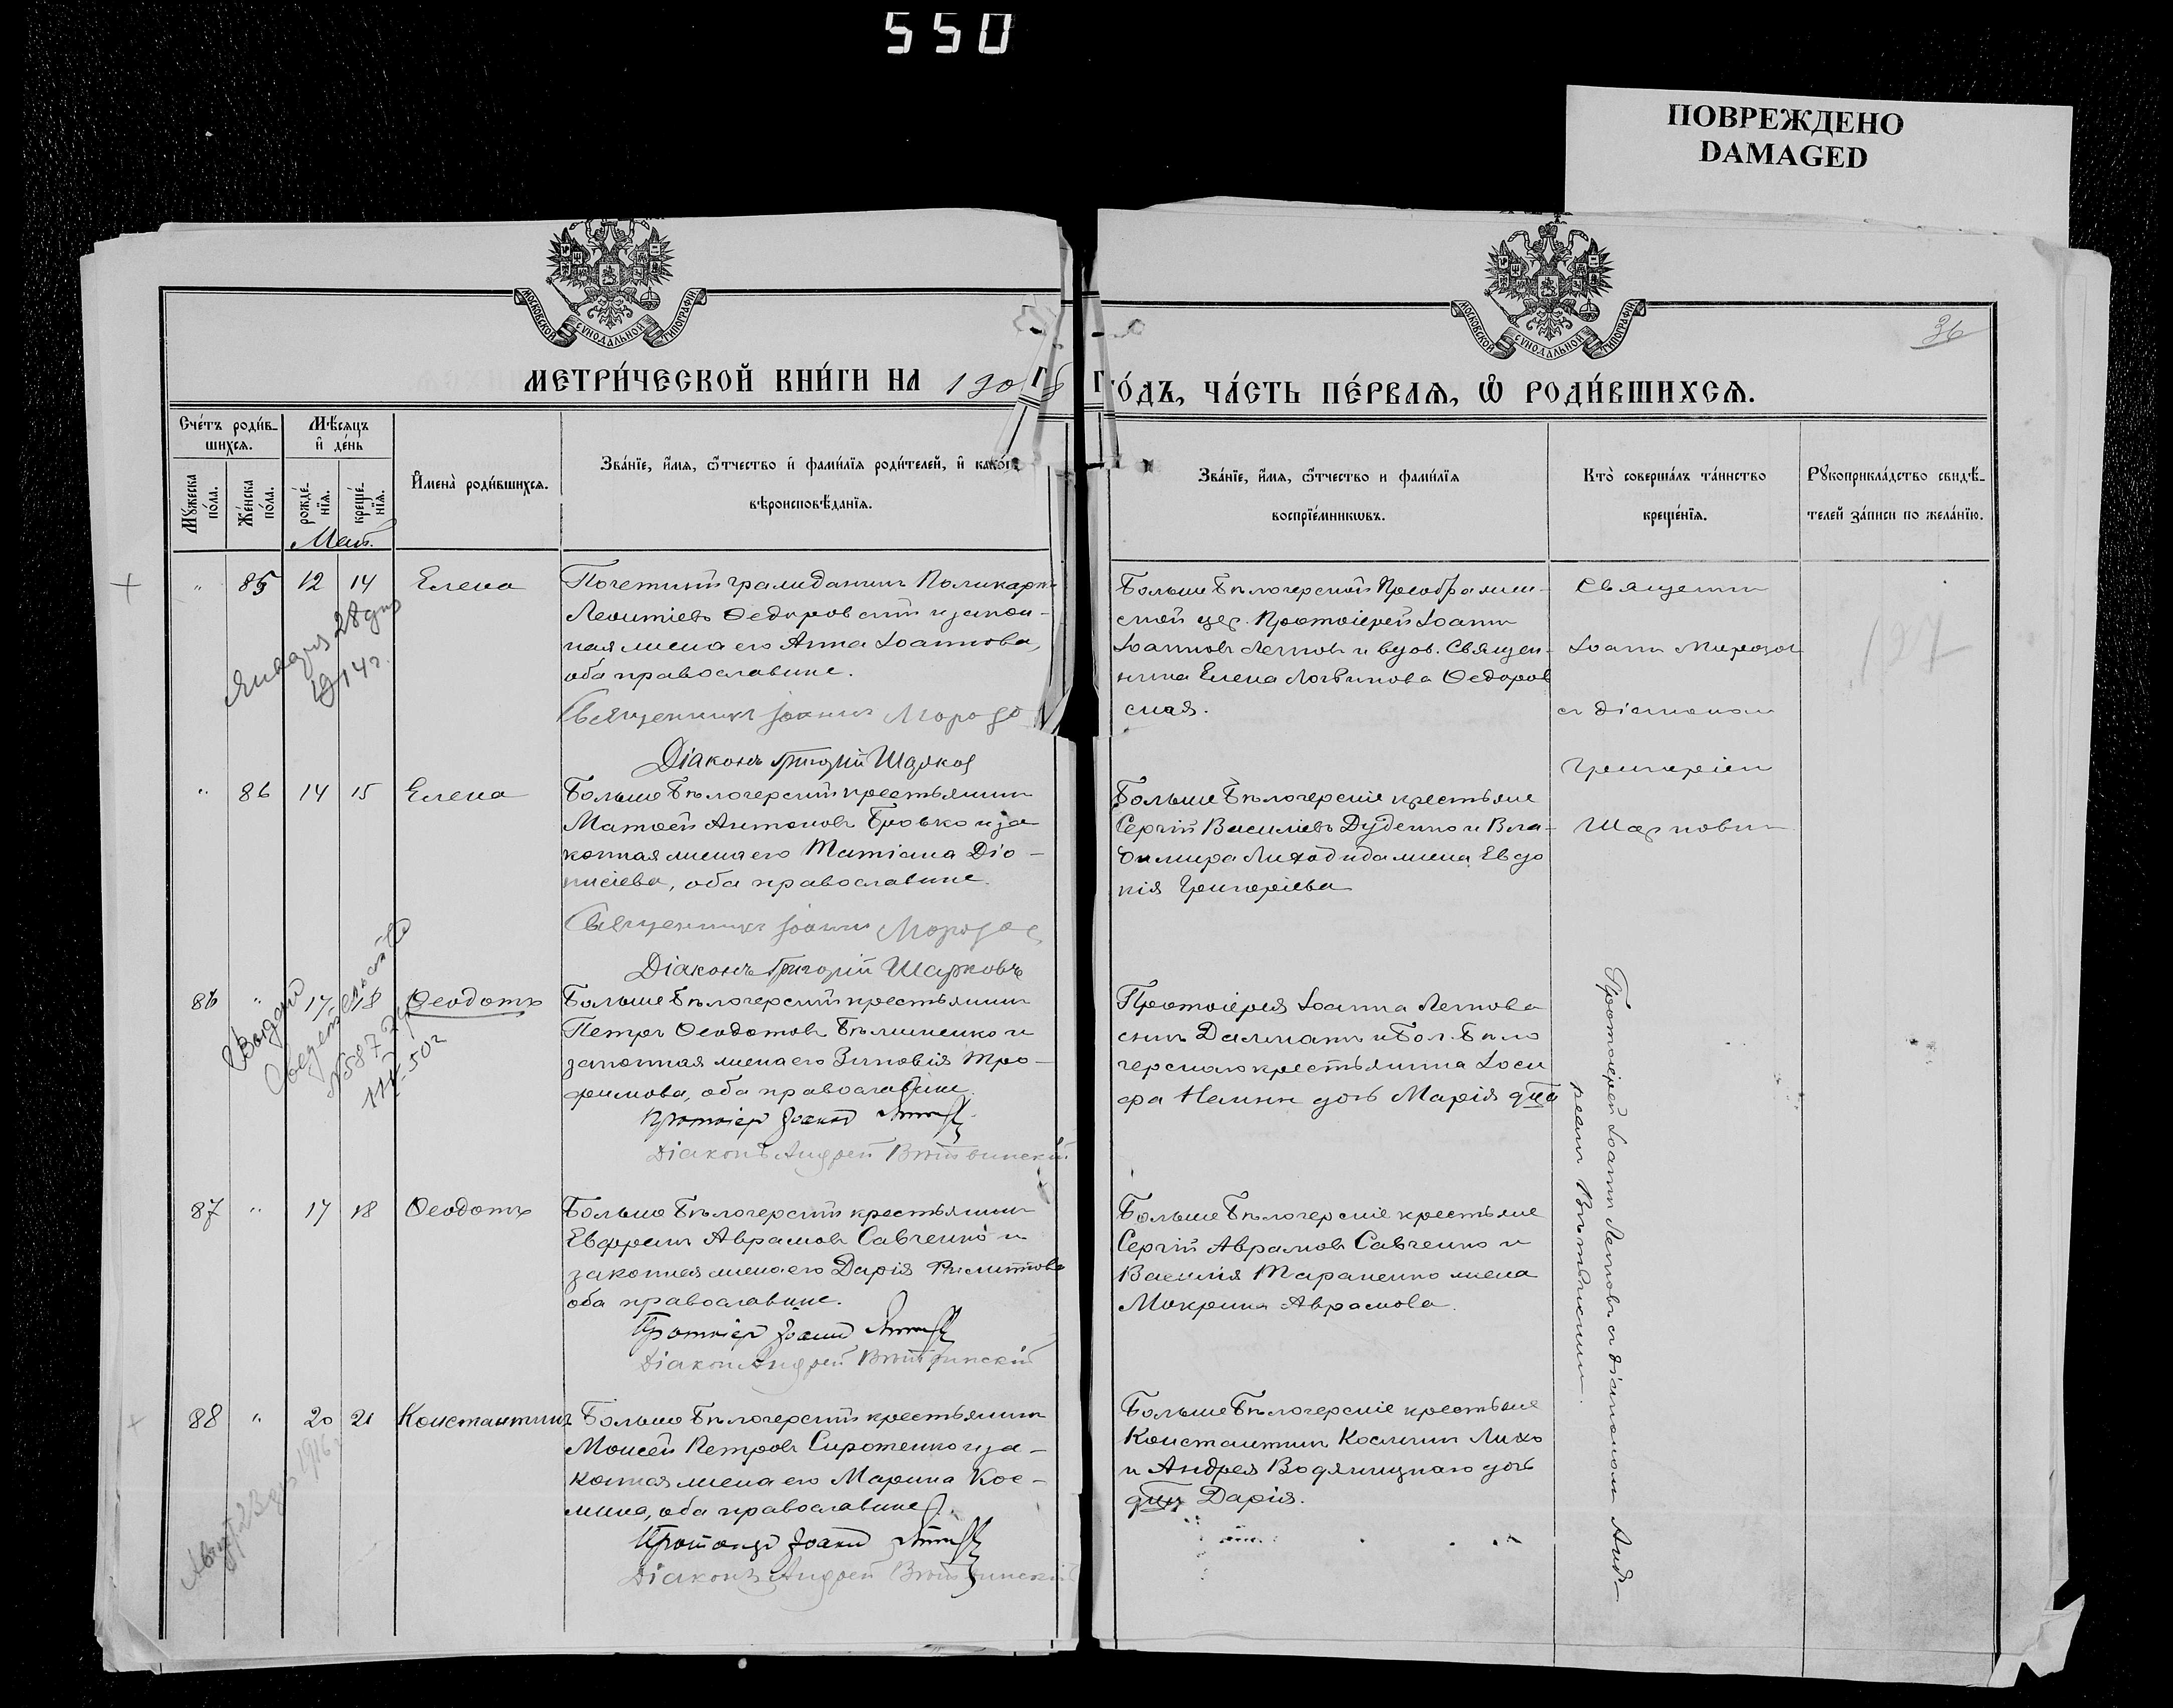 550
ПОВРЕЖДЕНО
DAMAGED
МОСКОВСКОЙ СѴНОДАЛЬНОЙ ТИПОГРАФІИ
МОСКОВСКОЙ СѴНОДАЛЬНОЙ ТИПОГРАФІИ
36
МЕТРИ́ЧЕСКОЙ КНИ́ГИ НА 1908 ГО́ДЪ, ЧА́СТЬ ПЕ́РВАѦ, Ѡ РОДИ́ВШИХСѦ.
Сче́тъ роди́в-
шихсѧ.
Мѣ́сѧцъ
и̂ де́нь
Мꙋ́жеска
по́ла.
Же́нска
по́ла.
рожде́-
нїѧ.
креще́-
нїѧ.
И̂мена̀ роди́вшихсѧ.
Зва́нїе, и́мѧ, ѻ҆́тчество и̂ фами́лїѧ роди́телей, и̂ како́гѡ
вѣроисповѣ́данїѧ.
Зва́нїе, и́мѧ, ѻ҆́тчество и фами́лїѧ
воспрїе́мникωвъ.
Кто̀ соверша́лъ та́инство
креще́нїѧ.
Рꙋкоприкла́дство свидѣ́-
телей за́писи по жела́нїю.
Май.
" 85 12 14 Елена
Почетный гражданинъ Поликарпъ
Леонтіевъ Ѳедоровскій и закон-
ная жена его Анна Іоаннова,
оба православные.
Священникъ Іоаннъ Морозо
Діаконъ Григорій Шарков
Января 28 дня
1914 г.
Больше Бѣлозерской Преображен-
ской цер. Протоіерей Іоаннъ
Іоанновъ Летовъ и вдов. Священ-
ника Елена Логвинова Ѳедоров
ская.
Священник
Іоанн Морозов
съ діаконом
Григоріем
Шарковым
197
" 86 14 15 Елена
Больше Бѣлозерскій крестьянинъ
Матѳей Антоновъ Бровко и за
конная жена его Татіана Діо-
нисіева, оба православные.
Священникъ Іоаннъ Морозов
Діаконъ Григорій Шарковъ
Больше Бѣлозерскіе крестьяне
Сергій Василіевъ Дуденко и Вла-
димира Лиходида жена Евдо
кія Григоріева
86 " 17 18 Ѳеодотъ
Больше Бѣлозерскій крестьянинъ
Петръ Ѳеодотовъ Бѣлименко и
законная жена его Зиновія Тро-
фимова, оба православные.
Протоіер Іоанн
Діаконъ Андрей
Протоіерея Іоанна Летова
сынъ Далматъ и Бол. Бѣло
зерскаго крестьянина Іоси
фа дочь Марія
Протоіерей Іоанн Летовъ съ діаконом Анд-
реем
87 " 17 18 Ѳеодотъ
Больше Бѣлозерскій крестьянинъ
Евфремъ Аврамовъ Савченко и
законная жена его Дарія Филиппова
оба православные.
Протоіер Іоанн
Діакон Андрей
Больше Бѣлозерскіе крестьяне
Сергій Аврамовъ Савченко и
Василія Тараненко жена
Макрина Аврамова.
88 " 20 21 Константинъ
Больше Бѣлозерскій крестьянинъ
Моисей Петровъ Сиротенко и за-
конная жена его Марина Кос-
мина, оба православные.
Іоанн
Діаконъ Андрей
Больше Бѣлозерскіе крестьяне
Константинъ Косминъ Лихо
и Андрея Водяницкаго дочь
Дарія.